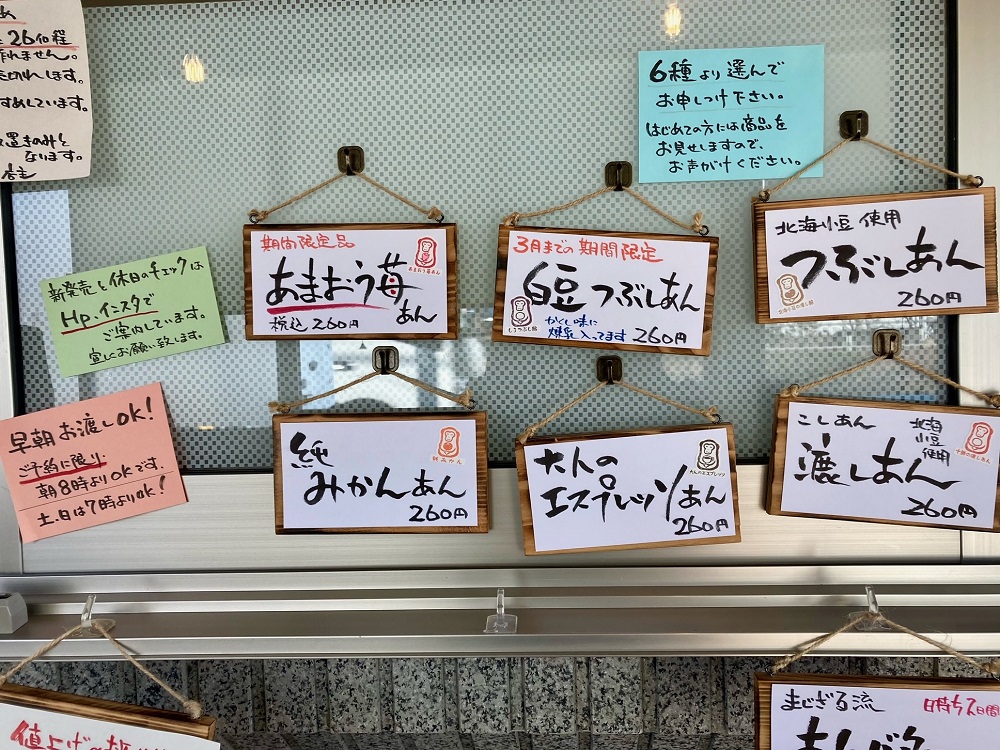 26個程
作れません。
売切れします。
すめしています。
置きのみと
なります。
店主
6種より選んで
お申しつけ下さい。
はじめての方には商品を
お見せしますので、
お声がけください。
期間限定品
あまおう苺
あん
税込260円
あまおう苺あん
3月までの期間限定
白豆つぶしあん
かくし味に
煉乳入ってます 260円
北海小豆 使用
つぶしあん
260円
新発売と休日のチェックは
HP.インスタで
ご案内しています。
宜しくお願い致します。
早朝お渡しOK!
ご予約に限り
朝8時よりOKです。
土.日は7時よりOK!
純
みかんあん
260円
純みかん
大人の
エスプレッソあん
260円
大人のエスプレッソ
こしあん
北海
小豆
使用
漉しあん
260円
値上げの
まじざる流
日持ち2日間